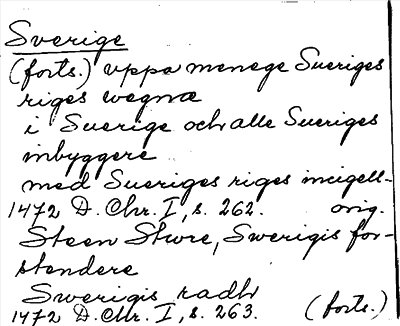 Sverige
(forts.) uppa menege Sueriges
riges wegnæ
i Suerige och alle Sueriges
inbyggere
med Sueriges riges incigell-
1472 D. Chr. I, s. 262. orig.
Steen Stwre, Swerigis for-
stendere
Swerigis radh
1472 D. Chr. I, s. 263. (forts.)